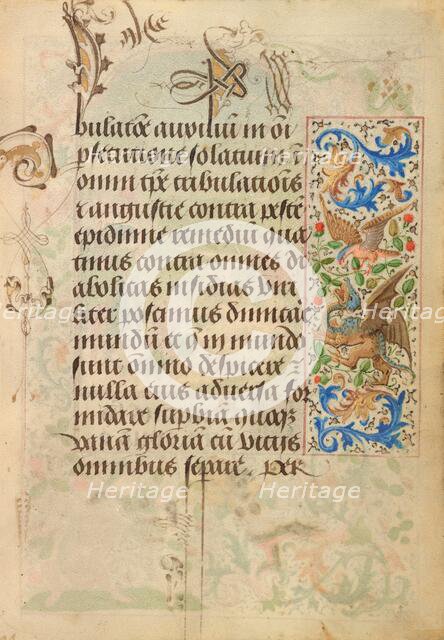 bulatōe auxiliū in oī
psecutione solatiū in
omni tpe tribulationis
⁊ angustie contra peste
epidimie remediū qua
tinus contra omnes di
abolicas insidias viri
liter possimus dimicare
mundū et q̄ in mundo
sunt omnio despicere
nulla eius adversa for
midare supbiā quoqꝫ
vanā gloriā cū vicijs
omnibus separe. Per
Heritage Heritage Heritage
Heritage Heritage Heritage
Heritage Heritage